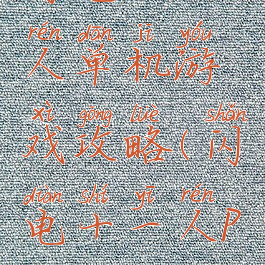 rén dān jī yóu
人单机游
xì gōng lüè shǎn
戏攻略(闪
diàn shí yī rén
电十一人P